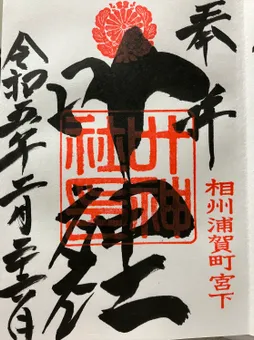 奉拝
相州浦賀町宮下
叶神社
叶神
社
令和五年二月